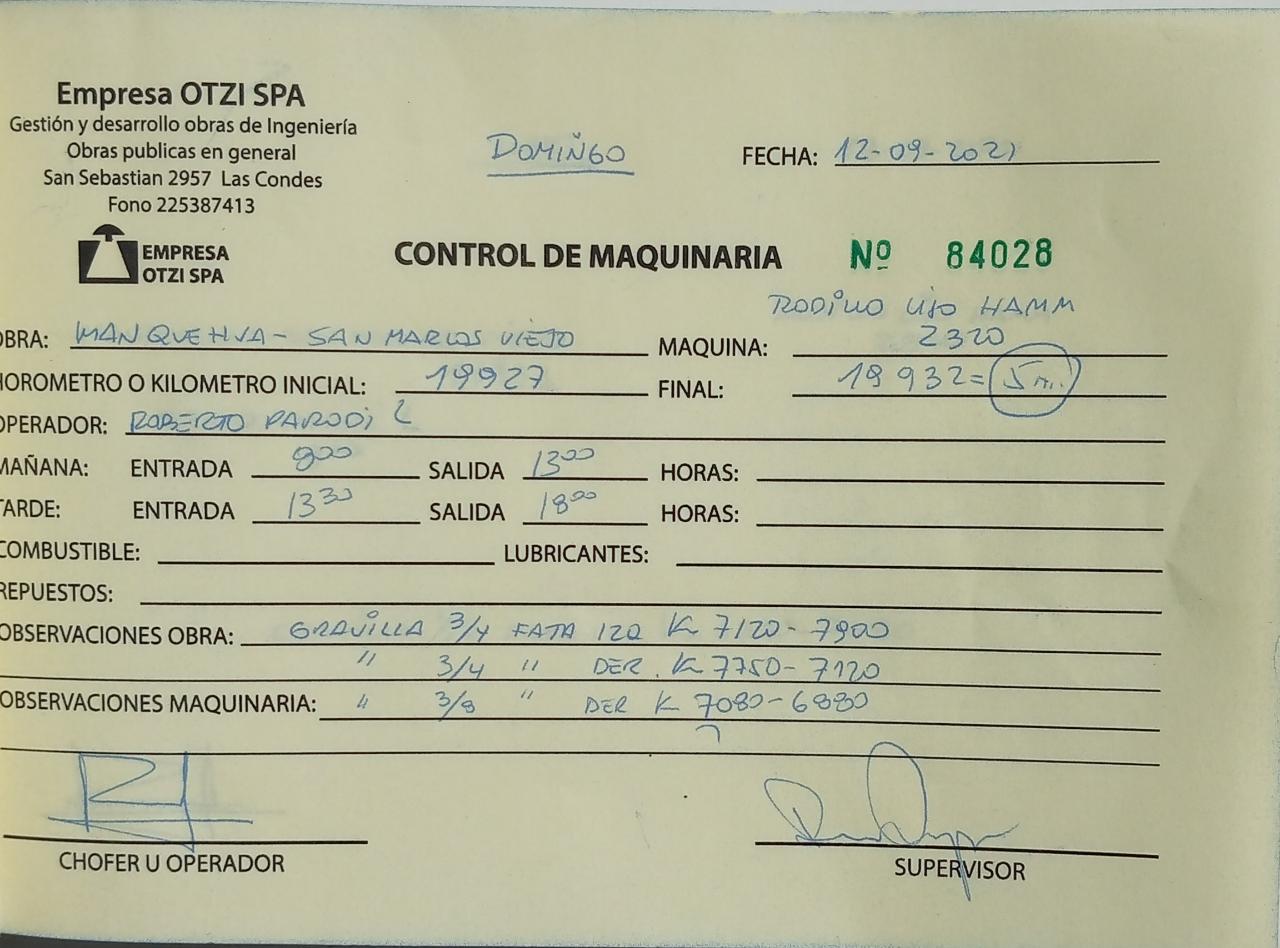 Empresa OTZI SPA
Gestión y desarrollo obras de Ingeniería
Obras publicas en general
San Sebastian 2957 Las Condes
Fono 225387413
DOMIÑGO FECHA: 12-09-2021
EMPRESA
OTZI SPA
CONTROL DE MAQUINARIA Nº 84028
RODILLO LISO HAMM
OBRA: MANQUEHUA - SAN MARCOS VIEJO MAQUINA: 2320
HOROMETRO O KILOMETRO INICIAL: 19927 FINAL: 19932=
OPERADOR: ROBERTO PARODI
MAÑANA: ENTRADA 900 SALIDA 1300 HORAS:
TARDE: ENTRADA 13 30 SALIDA 18 00 HORAS:
COMBUSTIBLE: LUBRICANTES:
REPUESTOS:
OBSERVACIONES OBRA: GRAVILLA 3/4 FATA IZQ K 7120 - 7900
" 3/4 " DER. K 7750 - 7120
OBSERVACIONES MAQUINARIA: " 3/8 " DER K 7080 - 6880
CHOFER U OPERADOR SUPERVISOR